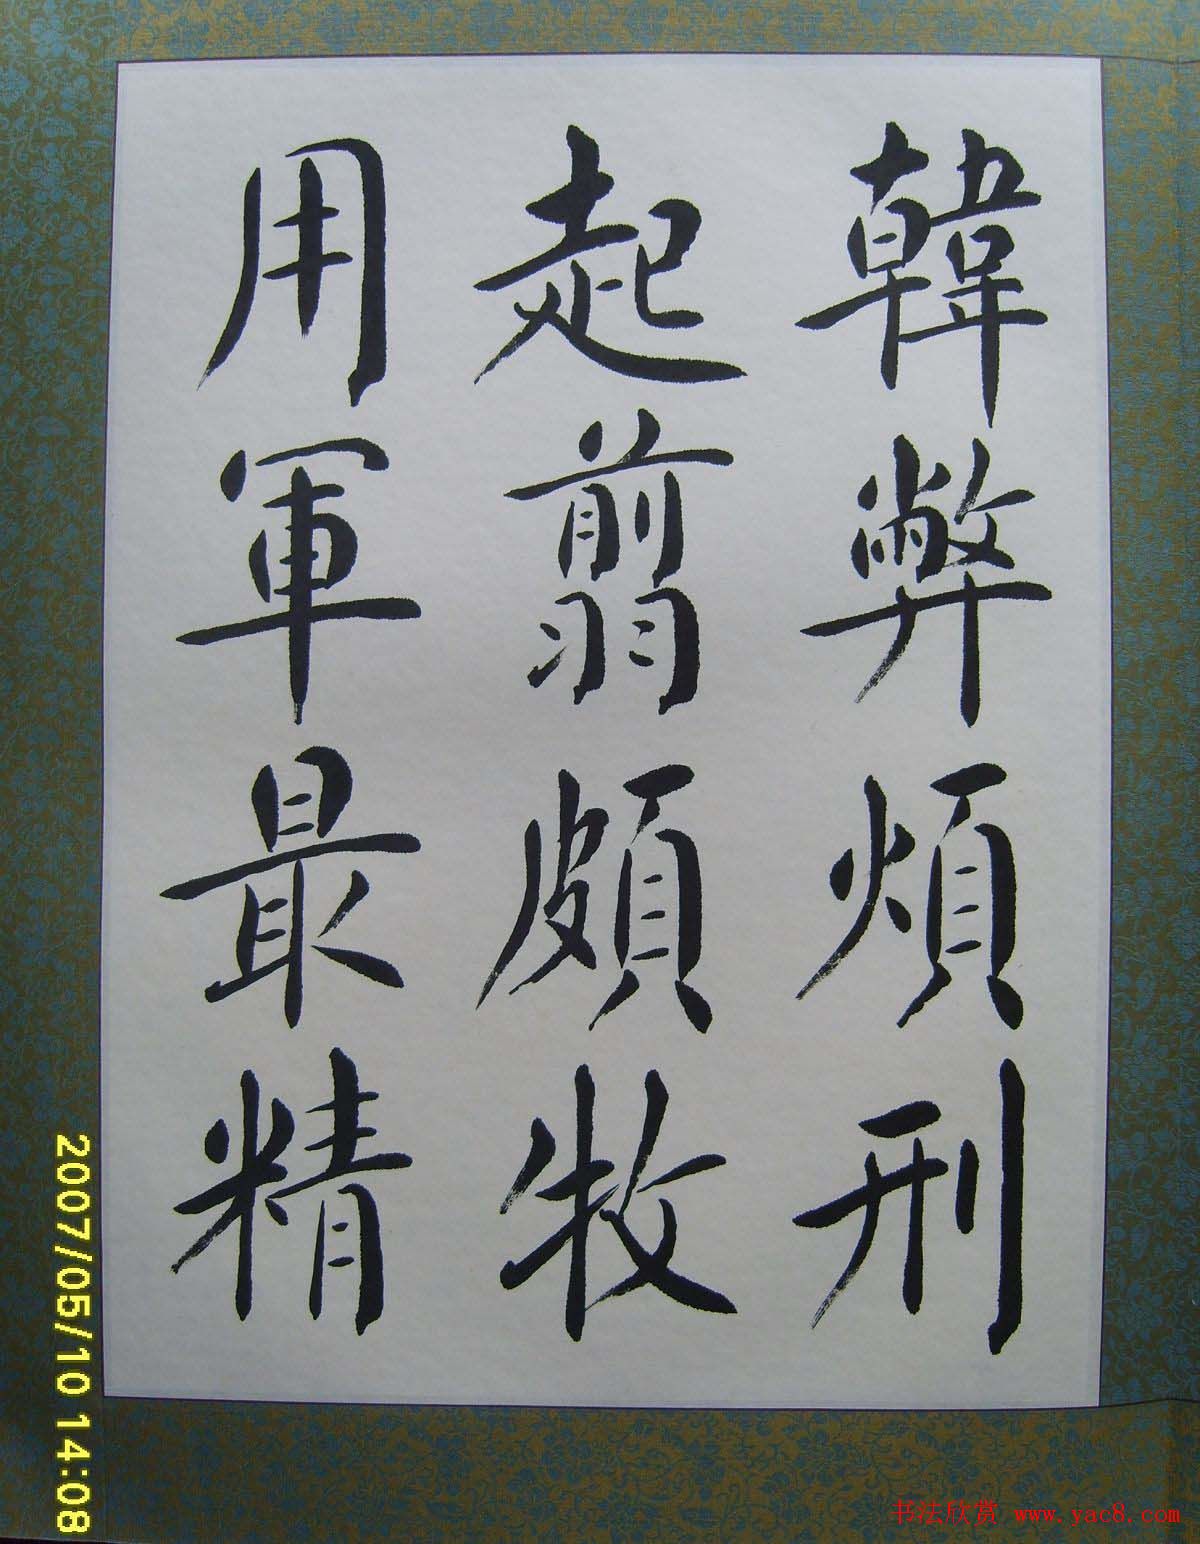 韓弊煩刑
起翦頗牧
用軍最精
2007/05/10 14:08
书法欣赏 www.yac8.com